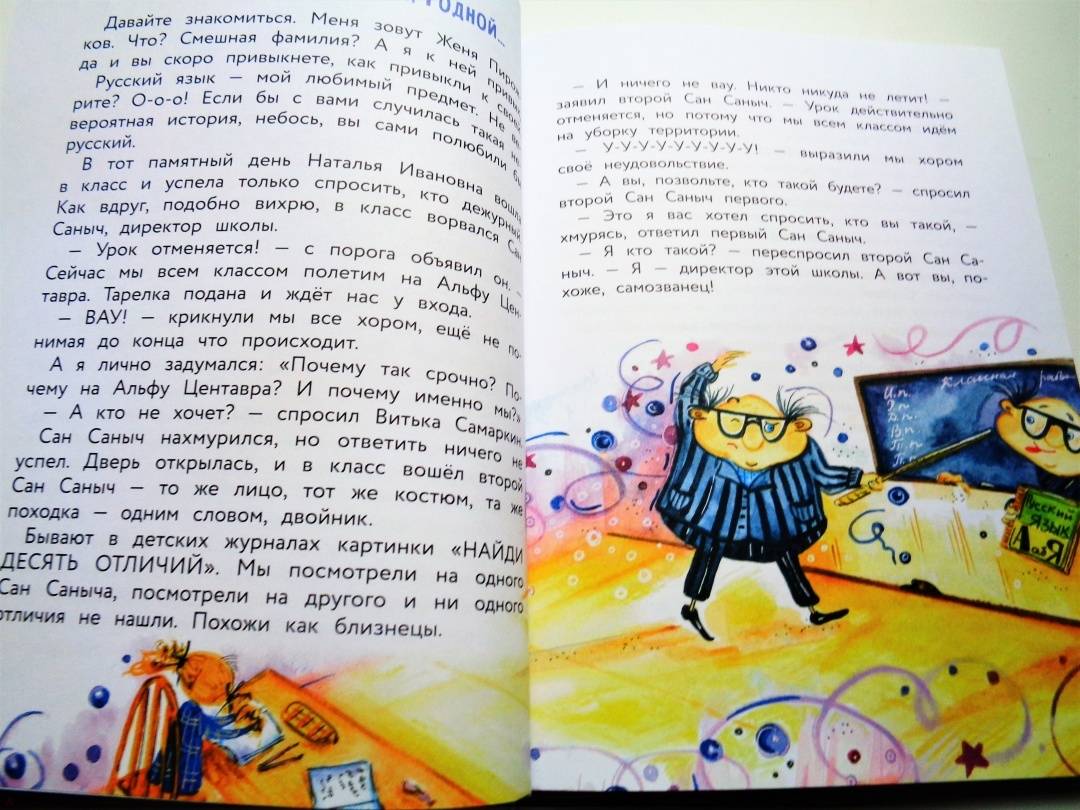 РОДНОЙ...
Давайте знакомиться. Меня зовут Женя Пирож-
ков. Что? Смешная фамилия? А я к ней привык
да и вы скоро привыкнете, как привыкли к своей
Русский язык — мой любимый предмет. Не ве-
рите? О-о-о! Если бы с вами случилась такая не-
вероятная история, небось, вы сами полюбили бы
русский.
В тот памятный день Наталья Ивановна вошла
в класс и успела только спросить, кто дежурный
Как вдруг, подобно вихрю, в класс ворвался Сан
Саныч, директор школы.
— Урок отменяется! — с порога объявил он. —
Сейчас мы всем классом полетим на Альфу Цен-
тавра. Тарелка подана и ждёт нас у входа.
— ВАУ! — крикнули мы все хором, ещё не по-
нимая до конца что происходит.
А я лично задумался: «Почему так срочно? По-
чему на Альфу Центавра? И почему именно мы?»
— А кто не хочет? — спросил Витька Самаркин.
Сан Саныч нахмурился, но ответить ничего не
успел. Дверь открылась, и в класс вошёл второй
Сан Саныч — то же лицо, тот же костюм, та же
походка — одним словом, двойник.
Бывают в детских журналах картинки «НАЙДИ
ДЕСЯТЬ ОТЛИЧИЙ». Мы посмотрели на одного
Сан Саныча, посмотрели на другого и ни одного
отличия не нашли. Похожи как близнецы.
— И ничего не вау. Никто никуда не летит! —
заявил второй Сан Саныч. — Урок действительно
отменяется, но потому что мы всем классом идём
на уборку территории.
— У-У-У-У-У-У-У-У-У! — выразили мы хором
своё неудовольствие.
— А вы, позвольте, кто такой будете? — спросил
второй Сан Саныч первого.
— Это я вас хотел спросить, кто вы такой, —
хмурясь, ответил первый Сан Саныч.
— Я кто такой? — переспросил второй Сан Са-
ныч. — Я — директор этой школы. А вот вы, по-
хоже, самозванец!
Классная рабо
И.п.
Р.п.
Д.п.
В.п.
Т.п.
П.п.
Русский
ЯЗЫК
А до Я